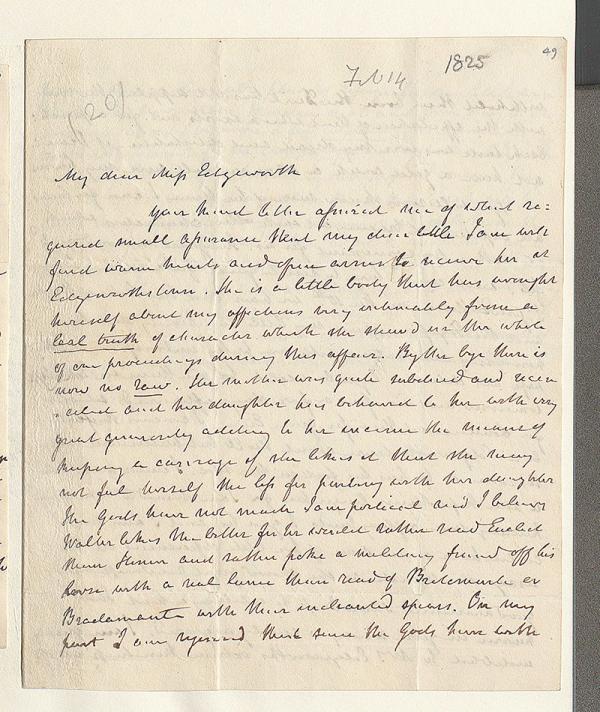 49
1825
Feb 14
(20)
My dear Miss Edgeworth
Your kind letter assured me of what re=
quired small assurance that my dear little Jane will
find warm hearts and open arms to receive her at
Edgeworthstown. She is a little body that has wrought
herself about my affections very intimately from a
leal truth of character which she shewd in the whole
of our proceedings during this affair. By the bye there is
now no row. The mother was quite subdued and recon
=ciled and her daughter has behaved to her with very
great generosity adding to her income the means of
keeping a carriage if she likes it that she may
not feel herself the less for parting with her daughter
The Gods have not made Jane poetical and I believe
Walter likes her the better for he would rather read Euclid
than Homer and rather poke a military friend off his
horse with a real lance than read of Britomarte or
Bradamante with their enchanted spears. On my
part I am rejoiced that since the Gods have